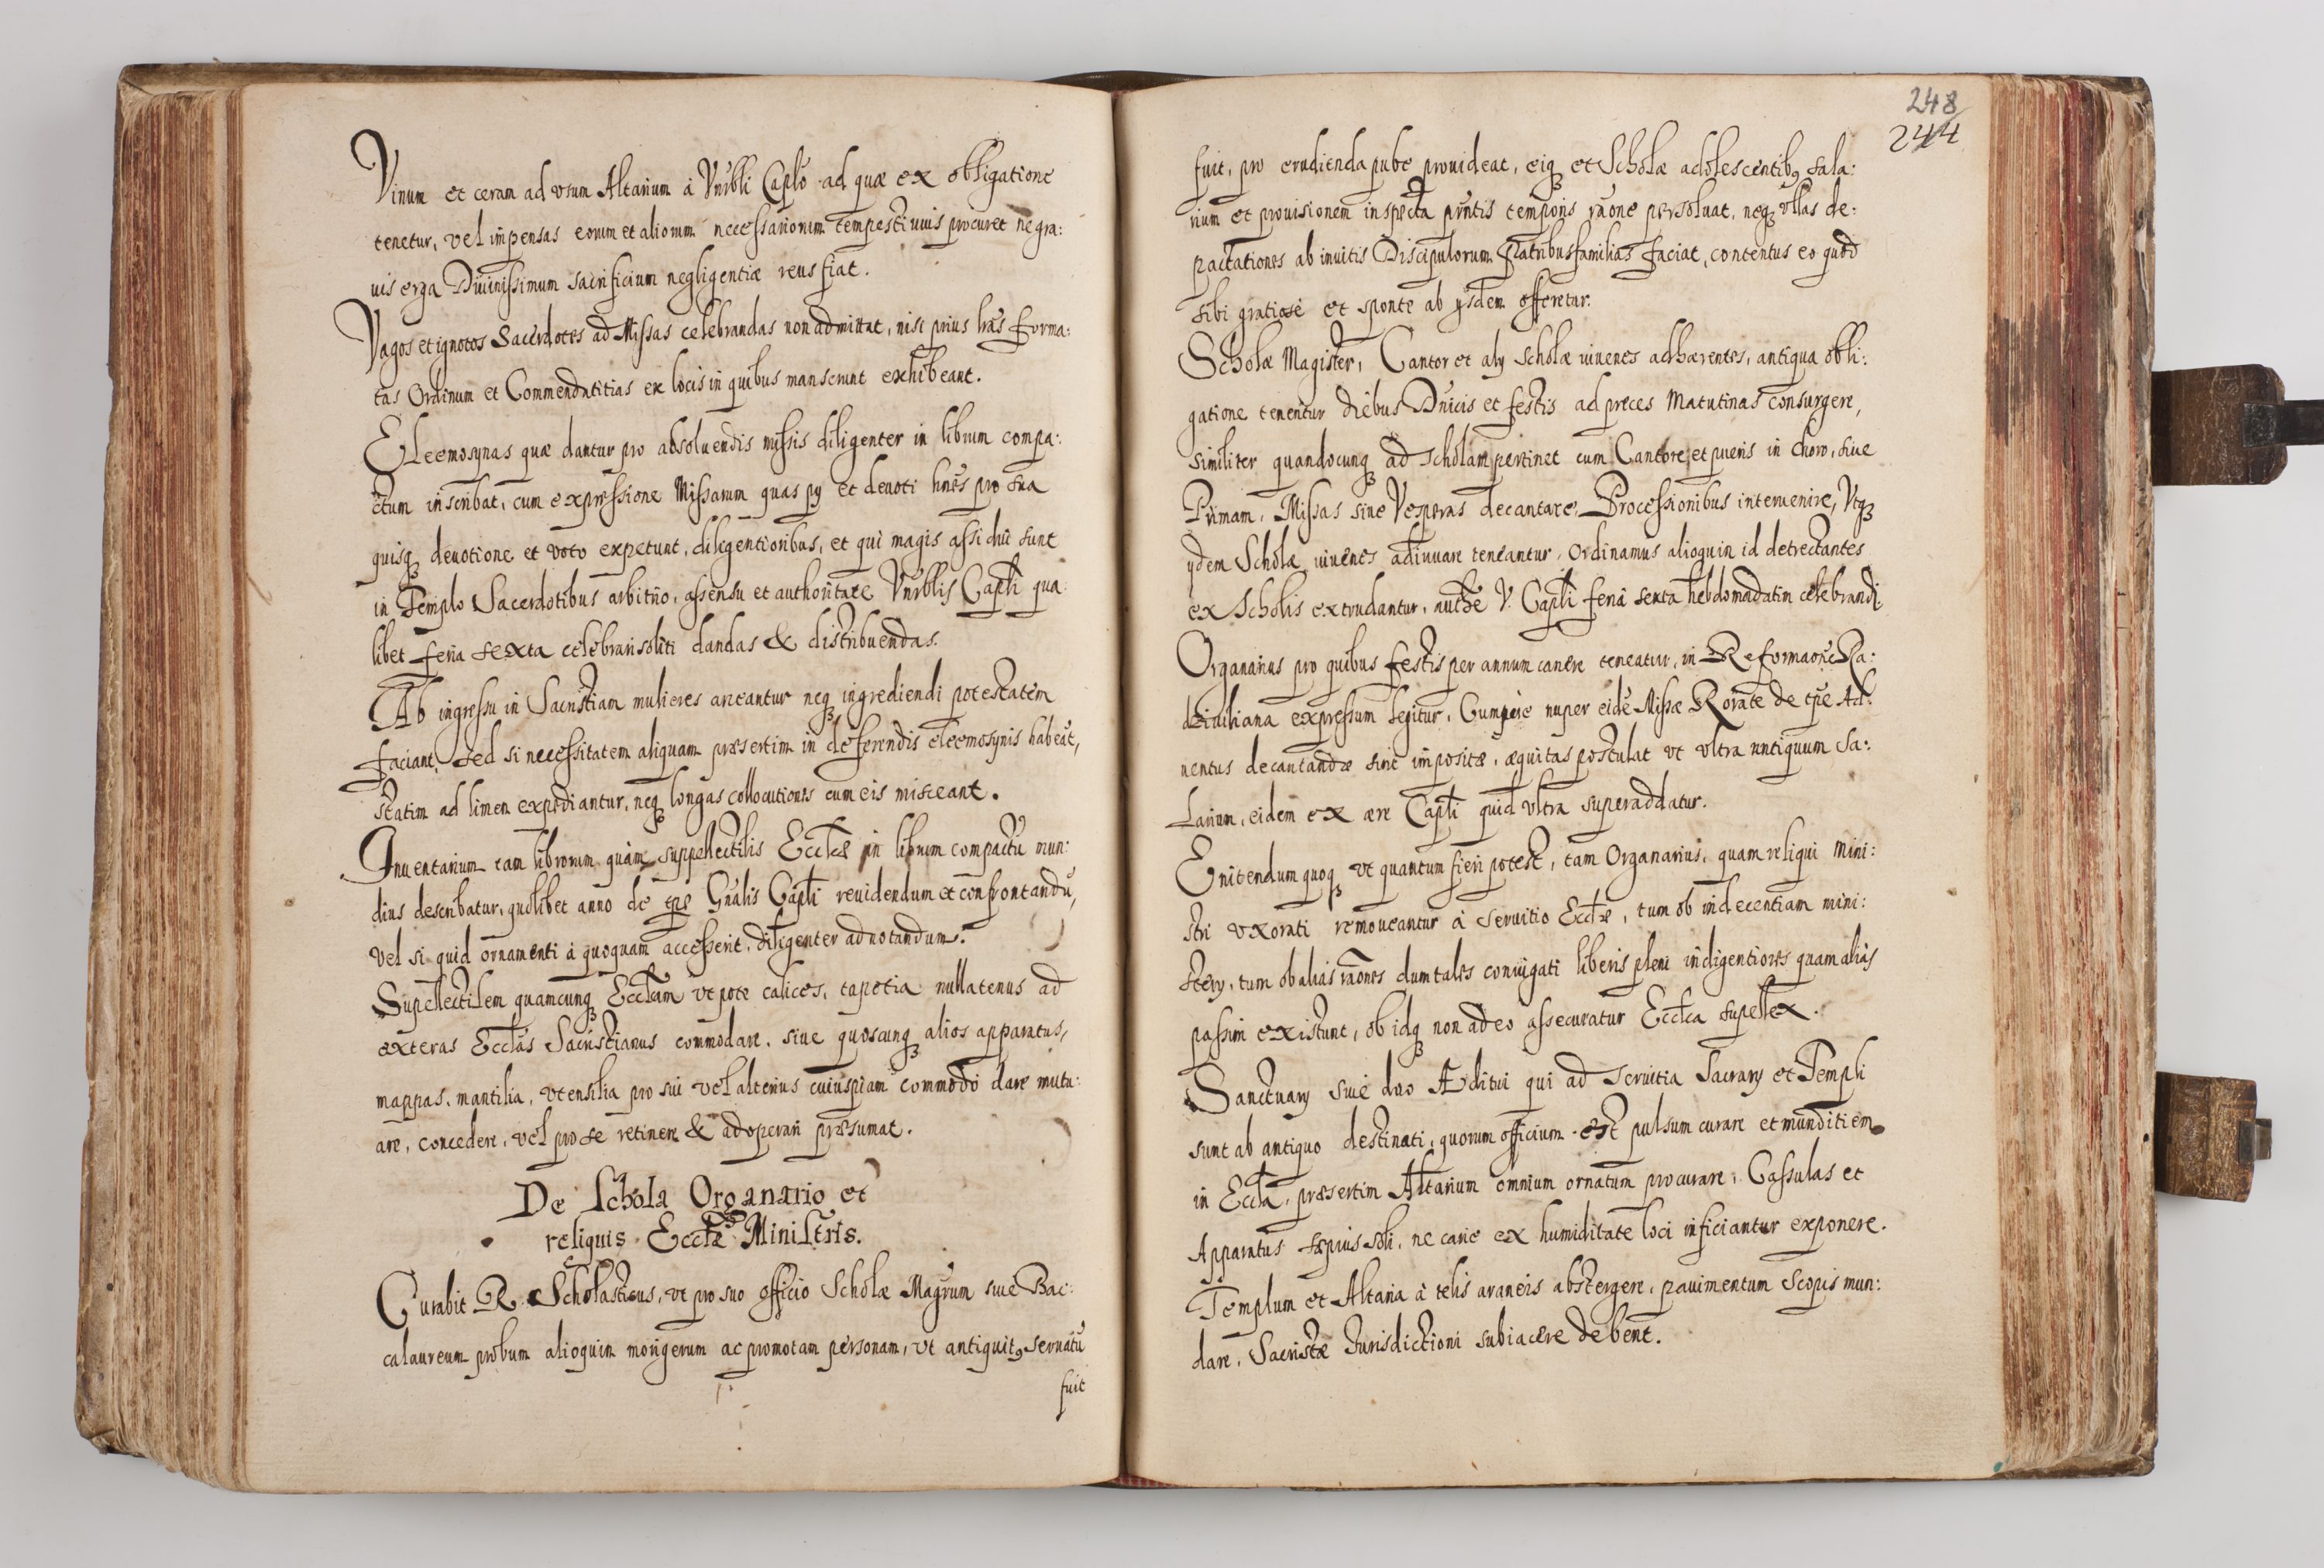 Vinum et ceram ad vsum Altarium à Vnrbli Caplo ad quæ ex obligatione
tenetur, vel impensas eorum et aliorum necessariorum tempestiuius procuret ne gra:
uis erga Diuinissimum sacrificium negligentiæ reus fiat.
Vagos et ignotos Sacerdotes ad Missas celebrandas non admittat, nisi prius lras forma:
tas Ordinum et Commendatitias ex locis in quibus manserunt exhibeant.
Eleemosynas quæ dantur pro absoluendis missis diligenter in librum compa:
ctum inscribat, cum expressione Missarum quas py et deuoti hnes pro sua
quisq3 deuotione et voto expetunt, diligentioribus, et qui magis assidui sunt
in Templo Sacerdotibus arbitrio, assensu et authoritate Vnrblis Capli qua:
libet feria sexta celebrari soliti dandas & distribuendas.
Ab ingressu in Sacristiam mulieres arceantur neq3 ingrediendi potestatem
faciant, sed si necessitatem aliquam præsertim in deferendis eleemosynis habeãt,
statim ad limen expediantur, neq3 longas collocutiones cum eis misceant.
Inuentarium tam librorum quàm suppellectilis Ecclæ in librum compactũ mun:
dius describatur, quolibet anno de tpe Gnalis Capli reuidendum et confrontandũ,
vel si quid ornamenti à quoquam accesserit, diligenter adnotandum.
Supellectilem quamcunq3 Ecclam vt pote calices, tapetia nullatenus ad
exteras Ecclas Sacristianus commodare, siue quoscunq3 alios apparatus,
mappas, mantilia, vtensilia pro sui vel alterius cuiuspiam commodo dare mutu:
are, concedere, vel pro se retinere & adoperari præsumat.
De Schola Organario et
reliquis Ecclæ Ministris.
Curabit R. Scholasticus, vt pro suo officio Scholæ Magrum siue Bac:
calaureum probum alioquin morigerum ac promotam personam, vt antiquit9 seruatũ
fuit
248
244
fuit, pro erudienda pube prouideat, eiq3 et Scholæ adolescentib9 sala:
rium et prouisionem inspecta prntis temporis raone persoluat, neq3 vllas de:
pactationes ab inuitis Discipulorum Patribusfamilias faciat, contentus eo quod
sibi gratiose et sponte ab ysdem offeretur.
Scholæ Magister, Cantor et aly scholæ iuuenes adhærentes, antiqua obli:
gatione tenentur diebus Dnicis et festis ad preces Matutinas consurgere,
similiter quandocunq3 ad scholam pertinet cum Cantore et pueris in choro, siue
Primam, Missas siue Vesperas decantare, Processionibus interuenire, Vtq3
ydem Scholæ iuuenes adiuuare teneantur, ordinamus alioquin id detrectantes
ex Scholis extrudantur, authe V. Capli feria sexta hebdomadatim celebrandi.
Organarius pro quibus festis per annum canere teneatur, in Reformaone Ra:
dziuiliana expressum legitur, Cumque nuper eidẽ Missæ Rorate de tpe Ad:
uentus decantandæ sint impositæ, æquitas postulat vt vltra antiquum sa:
larium, eidem ex ære Capli quid vltra superaddatur.
Enitendum quoq3 vt quantum fieri potest, tam Organarius, quam reliqui mini:
stri vxorati remoueantur à seruitio Ecclæ, tum ob indecentiam mini:
stery, tum ob alias raones dum tales coniugati liberis pleni indigentiores quam alias
passim existunt, ob idq3 non adeo assecuratur Ecclca supellex.
Sanctuary siue duo Æditui qui ad seruitia Sacrary et Templi
sunt ab antiquo destinati, quorum officium est pulsum curare et munditiem
in Eccla, præsertim Altarium omnium ornatum procurare, Cassulas et
Apparatus sæpius soli, ne carie ex humiditate loci inficiantur exponere.
Templum et Altaria à telis araneis abstergere, pauimentum scopis mun:
dare, Sacristæ Iurisdictioni subiacere debent.